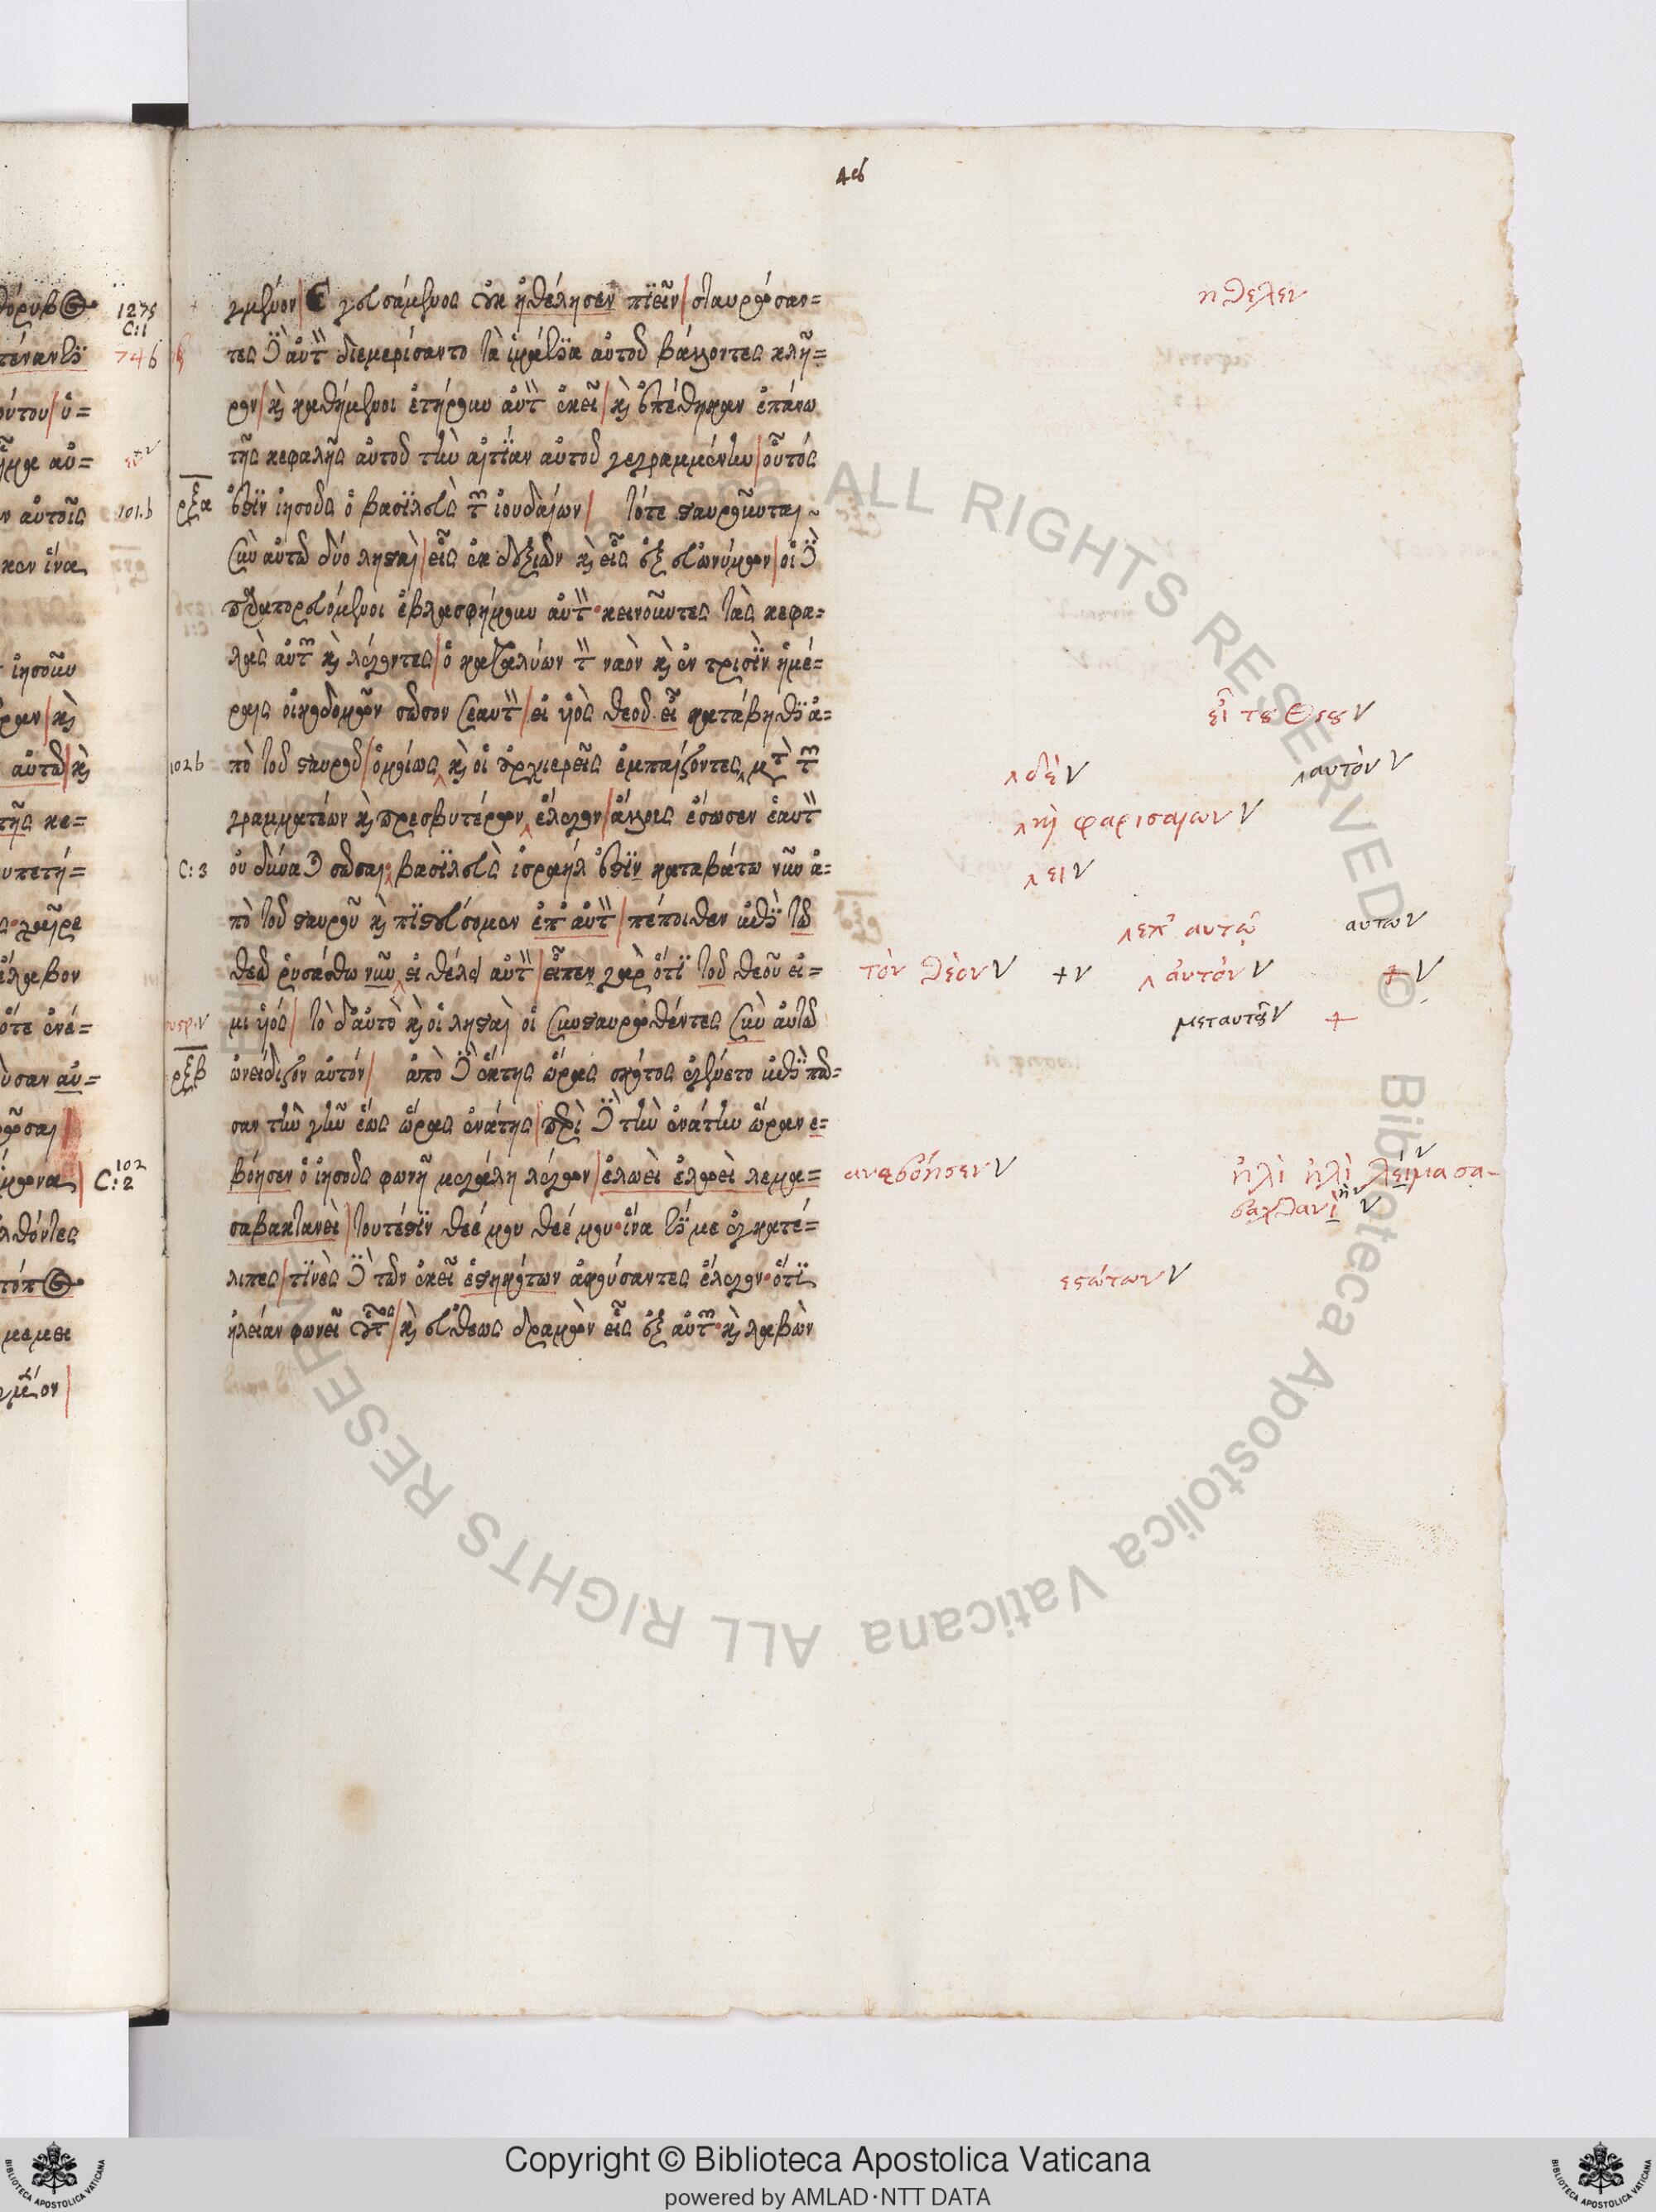 46
γμένον | καὶ γευσάμενος οὐκ ἠθέλησεν πιεῖν | σταυρώσαν=
τες δὲ αὐτὸν διεμερίσαντο τὰ ἱμάτια αὐτοῦ βάλλοντες κλῆ=
ρον | καὶ καθήμενοι ἐτήρουν αὐτὸν ἐκεῖ | καὶ ἐπέθηκαν ἐπάνω
τῆς κεφαλῆς αὐτοῦ τὴν αἰτίαν αὐτοῦ γεγραμμένην | οὗτός
ρξα ἐστιν ἰησοῦς ὁ βασιλεὺς τῶν ἰουδαίων | τότε σταυροῦνται
σὺν αὐτῶ δύο λησταὶ | εἷς ἐκ δεξιῶν καὶ εἷς ἐξ εὐωνύμων | οἱ δὲ
παραπορευόμενοι ἐβλασφήμουν αὐτὸν κεινοῦντες τὰς κεφα=
λὰς αὐτῶν καὶ λέγοντες | ὁ καταλύων τὸν ναὸν καὶ ἐν τρισὶν ἡμέ=
ραις οἰκοδομῶν σῶσον σεαυτὸν | εἰ υἱὸς θεοῦ εἶ κατάβηθι ἀ=
102b πὸ τοῦ σταυροῦ | ὁμοίως καὶ οἱ ἀρχιερεῖς ἐμπαίζοντες μετὰ τῶν
γραμματέων καὶ πρεσβυτέρων ἔλεγον | ἄλλους ἔσωσεν ἑαυτὸν
C:3 οὐ δύναται σῶσαι βασιλεὺς ἰσραήλ ἐστιν καταβάτω νῦν ἀ=
πὸ τοῦ σταυροῦ καὶ πιστεύσομεν ἐπ' αὐτὸν | πέποιθεν ἐπὶ τῶ
θεῶ ῥυσάσθω νῦν εἰ θέλει αὐτὸν | εἶπεν γὰρ ὅτι τοῦ θεοῦ εἰ=
μι υἱός | τὸ δ'αὐτὸ καὶ οἱ λησταὶ οἱ συσταυρωθέντες σὺν αὐτῶ
ρξβ ὠνείδιζον αὐτόν | ἀπὸ δὲ ἕκτης ὥρας σκότος ἐγένετο ἐπὶ πᾶ=
σαν τὴν γῆν ἕως ὥρας ἐνάτης | περὶ δὲ τὴν ἐνάτην ὥραν ε=
βόησεν ὁ ἰησοῦς φωνῆ μεγάλη λέγων | ἐλωεὶ ἐλωεὶ λεμα=
σαβακτανεὶ | τουτέστιν θεέ μου θεέ μου ἵνα τί με ἐγκατέ=
λιπες | τινὲς δὲ τῶν ἐκεῖ ἑστηκότων ἀκούσαντες ἔλεγον ὅτι
ἠλείαν φωνεῖ οὗτος | καὶ εὐθέως δραμὼν εἷς ἐξ αὐτῶν καὶ λαβὼν
ηθελεν
εἶ τοῦ Θεοῦ ν
⁁ δὲ ν ⁁ αυτὸν ν
⁁ καὶ φαρισαίων ν
⁁ ει ν
⁁ επ' αυτῷ αυτων
τὸν θέον ν + ν ⁁ ἀυτόν ν + ν
μεταυτοῦ ν +
ανεβόησεν ν ἠλὶ ἠλὶ λείμα σα-
βαχθανὶ ν
εστώτων ν
1275
C:1
746
101.b
102
C:2
Copyright © Biblioteca Apostolica Vaticana
powered by AMLAD·NTT DATA
© Biblioteca Apostolica Vaticana ALL RIGHTS RESERVED